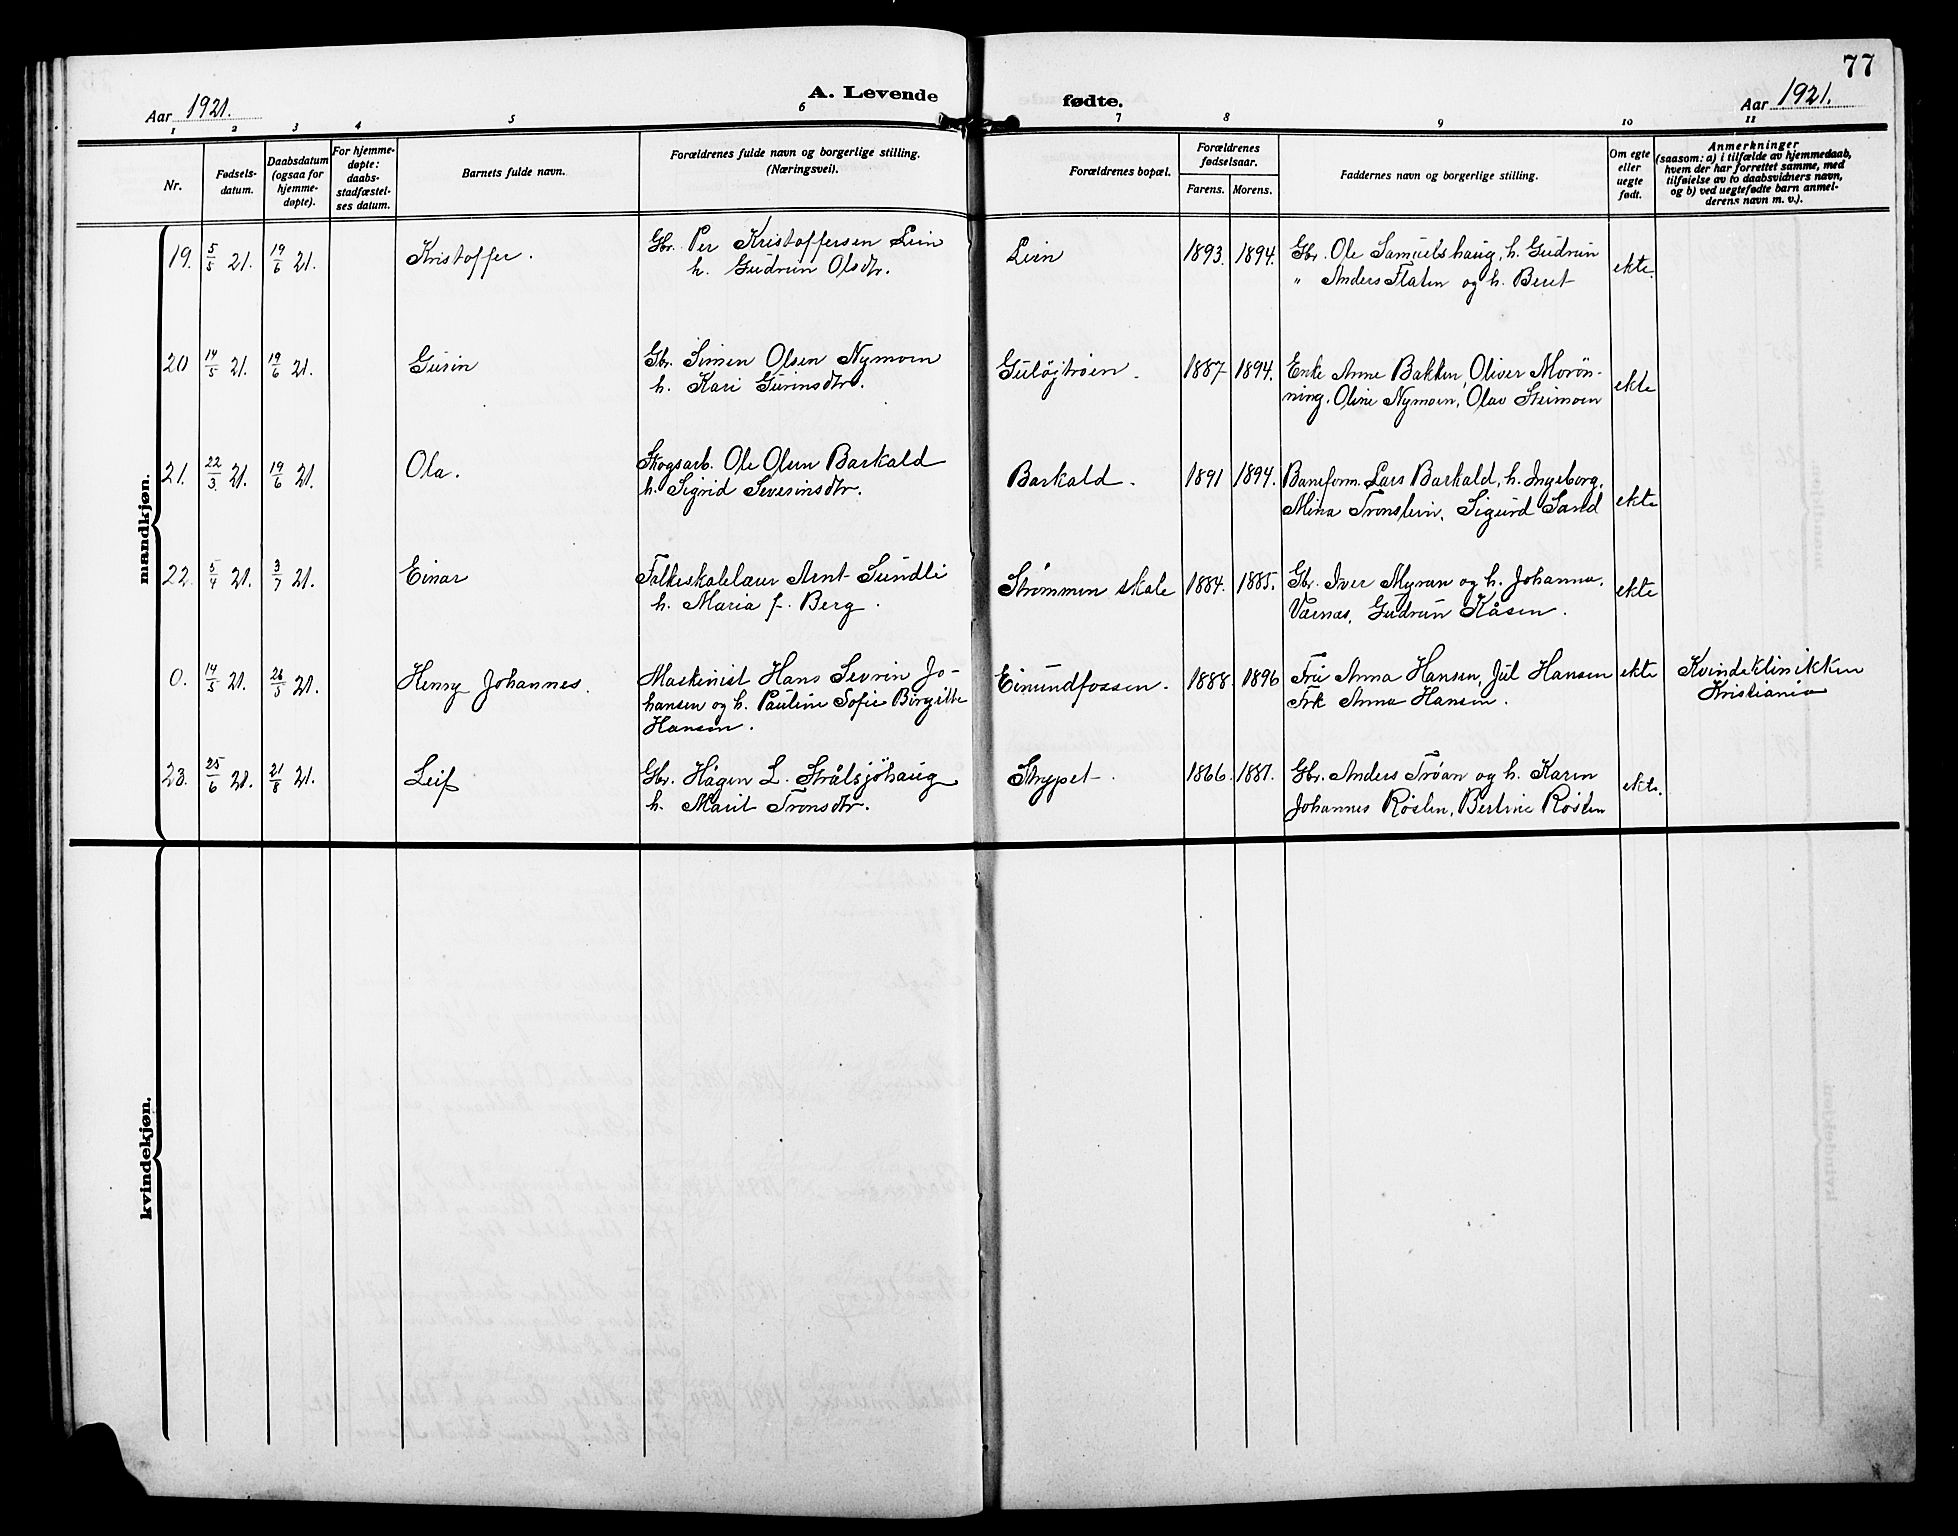 77
A. Levende fødte.
Aar 1921.
Aar 1921.
1 2 3 4 5 6 7 8 9 10 11
Nr.
Fødsels-
datum.
Daabsdatum
(ogsaa for
hjemme-
døpte).
For hjemme-
døpte:
daabs-
stadfæstel-
ses datum.
Barnets fulde navn.
Forældrenes fulde navn og borgerlige stilling.
(Næringsvei).
Forældrenes bopæl.
Forældrenes
fødselsaar.
Farens. Morens.
Faddernes navn og borgerlige stilling.
Om egte
eller
uegte
født.
Anmerkninger
(saasom: a) i tilfælde av hjemmedaab,
hvem der har forrettet samme, med
tilføielse av to daabsvidners navn,
og b) ved uegtefødte barn anmel-
derens navn m. v.).
mandkjøn.
19. 5/5 21. 19/6 21. Kristoffer. Gbr. Per Kristoffersen Lien Lien 1893. 1894. Gbr. Ole Samuelshaug, h. Gudrun ekte.
h. Gudrun Olsdtr. " Anders Flaten og h. Beret
20 14/5 21. 19/6 21. Gusin Gbr. Simen Olsen Nymoen Guløjtrøen. 1887 1894. Enke Anne Bakken, Oliver Morön- ekte
h. Kari Gurinsdtr. ning. Oline Nymoen, Olav Steimoen
21. 22/3 21. 19/6 21. Ola. Skogsarb. Ole Olsen Barkald Barkald. 1891 1894. Baneform. Lars Barkald, h. Ingeborg, ekte
h. Sigrid Severinsdtr. Mina Tronslien, Sigurd Sand
22. 5/4 21. 3/7 21. Einar Folkeskolelærer Arnt Sundli Strømmen skole 1884. 1885. Gbr. Iver Myran og h. Johanna. ekte
h. Maria f. Berg. Værnæs, Gudrun Kåsen.
0. 14/5 21. 26/5 21. Henry Johannes. Maskinist Hans Sevrin Jo- Einundfossen. 1888. 1896 Fru Anna Hansen, Jul Hansen ekte Kvindeklinikken
hansen og h. Pauline Sofie Birgitte Frk Anna Hansen. Kristiania
Hansen.
23. 25/6 21. 21/8 21. Leif Gbr. Hågen L. Strålsjöhaug Strypet. 1866. 1881. Gbr. Anders Tröan og h. Karen ekte.
h. Marit Tronsdtr. Johannes Rösten, Bertine Rösten
kvindekjøn.